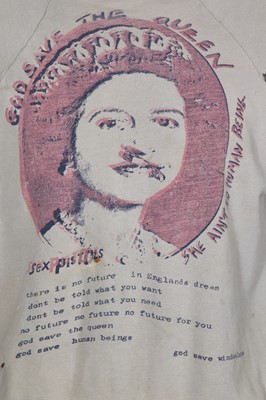 GOD SAVE THE QUEEN
SHE AIN'T HUMAN BEING
sex PISTOLS
there is no future in Englands dream
dont be told what you want
dont be told what you need
no future no future no future for you
god save the queen
god save human beings
god save windsor